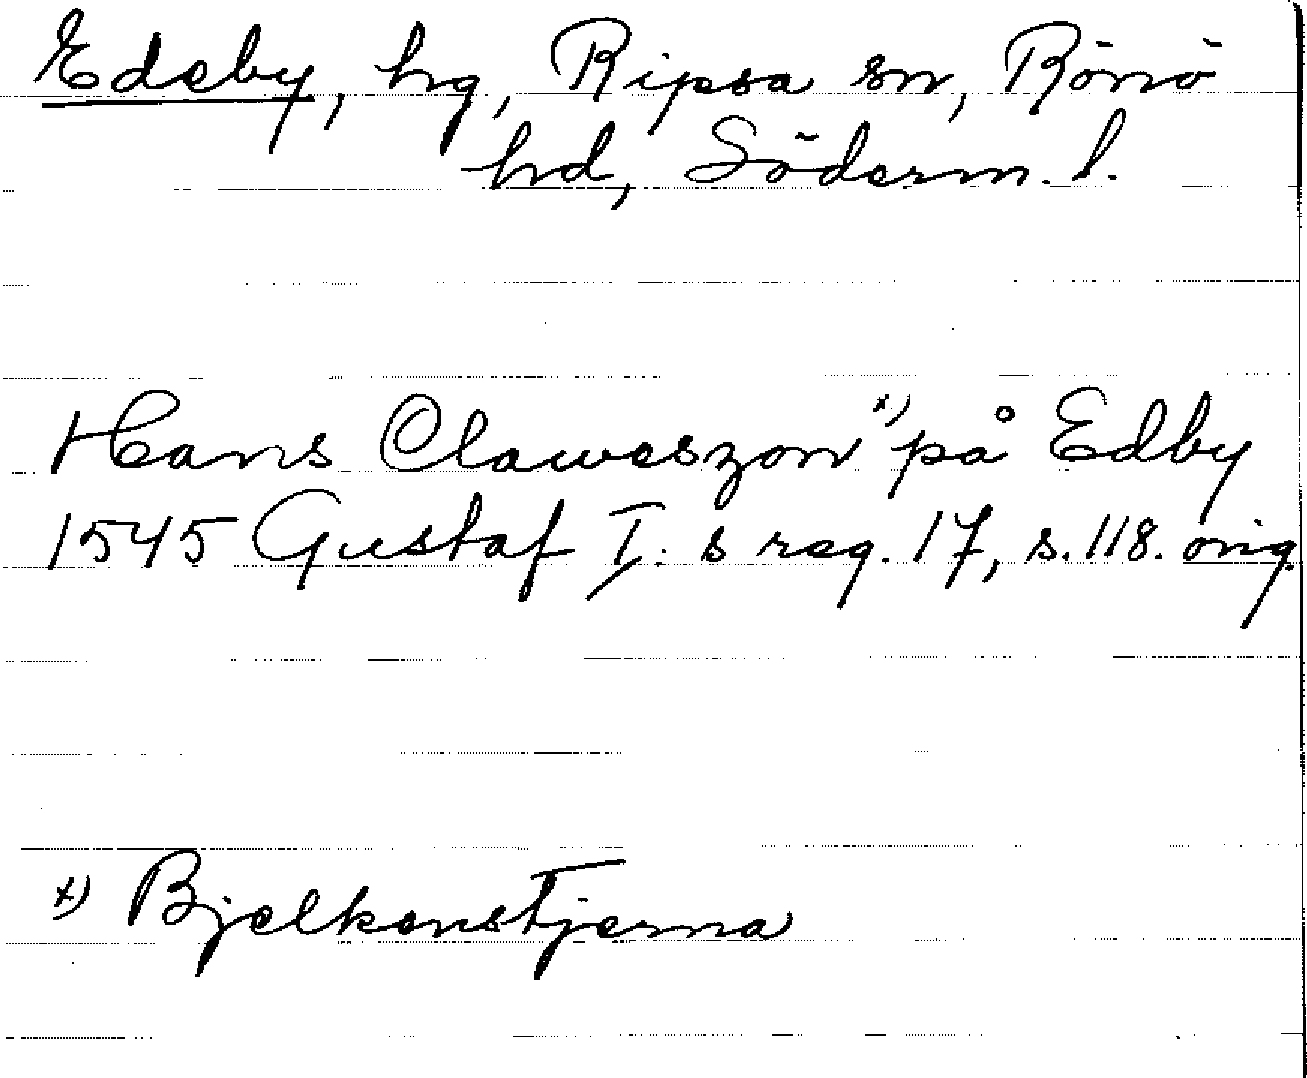 Edeby, hg, Ripsa sn, Rönö
hd, Söderm. l.
Hans Claweszon x) på Edby
1545 Gustaf I:s reg. 17, s. 118. orig.
x) Bjelkenstjerna